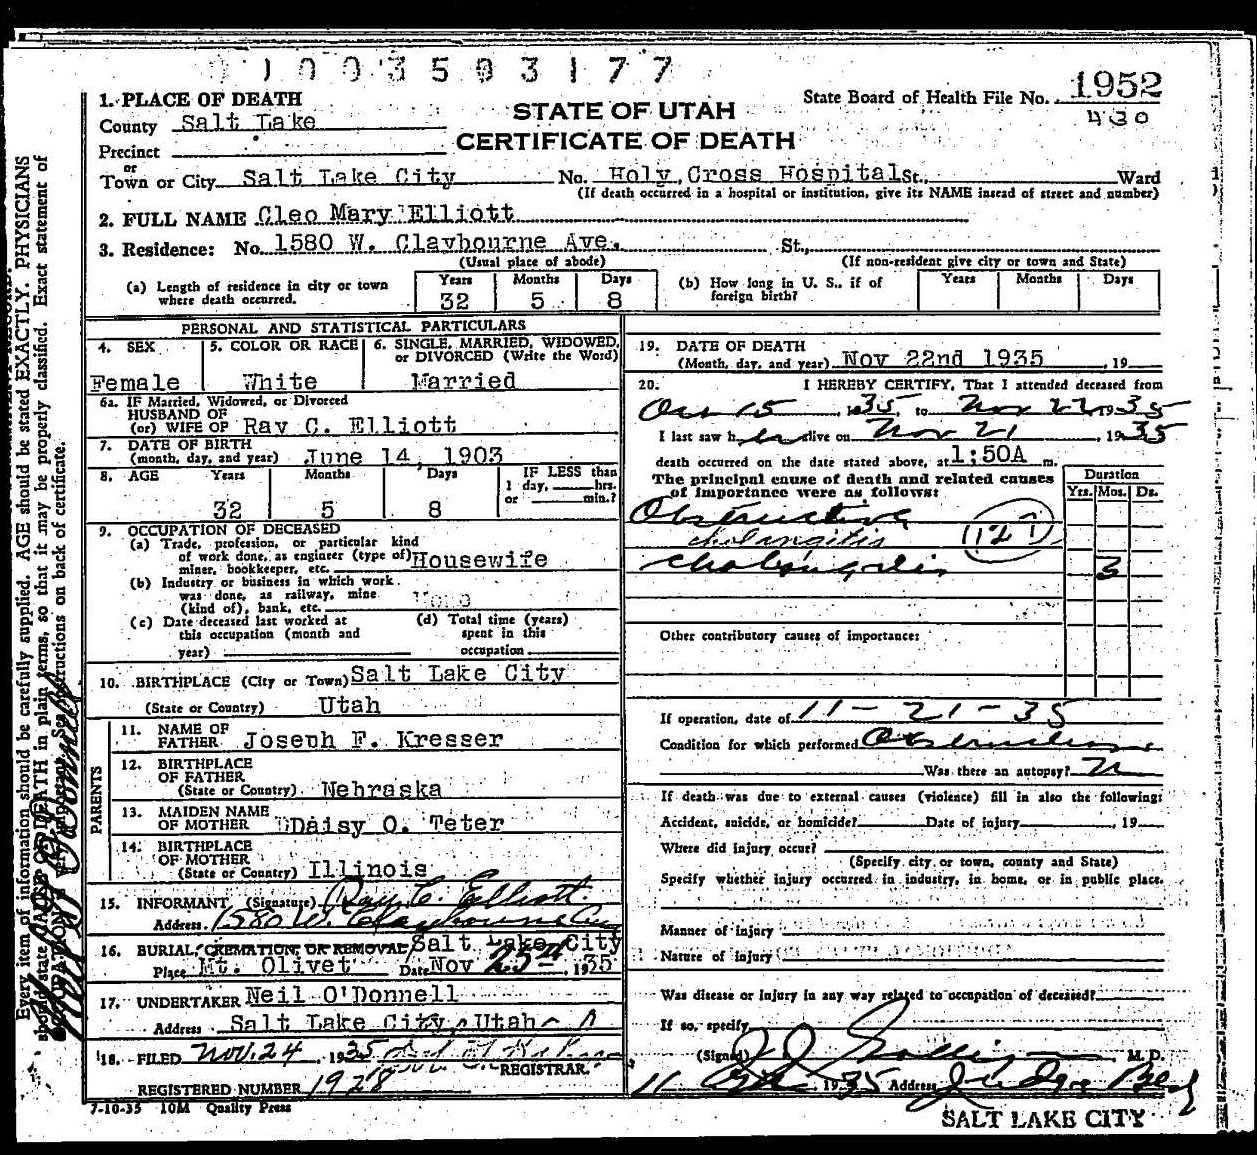 1003503177
1. PLACE OF DEATH
State Board of Health File No. 1952
STATE OF UTAH
430
County Salt Lake
CERTIFICATE OF DEATH
Precinct
or
Town or City Salt Lake City No. Holy Cross Hospital St., Ward
(If death occurred in a hospital or institution, give its NAME instead of street and number)
2. FULL NAME Cleo Mary Elliott
3. Residence: No. 1580 W. Claybourne Ave. St.,
(Usual place of abode) (If non-resident give city or town and State)
(a) Length of residence in city or town where death occurred. Years 32 Months 5 Days 8
(b) How long in U. S., if of foreign birth? Years Months Days
PERSONAL AND STATISTICAL PARTICULARS
4. SEX Female
5. COLOR OR RACE White
6. SINGLE, MARRIED, WIDOWED, or DIVORCED (Write the Word) Married
6a. IF Married, Widowed, or Divorced
HUSBAND OF
(or) WIFE OF Ray C. Elliott
7. DATE OF BIRTH
(month, day, and year) June 14, 1903
8. AGE Years 32 Months 5 Days 8
IF LESS than
1 day, hrs.
or min.?
9. OCCUPATION OF DECEASED
(a) Trade, profession, or particular kind
of work done, as engineer (type of)
miner, bookkeeper, etc. Housewife
(b) Industry or business in which work
was done, as railway, mine
(kind of), bank, etc.
(c) Date deceased last worked at
this occupation (month and
year)
(d) Total time (years)
spent in this
occupation
10. BIRTHPLACE (City or Town) Salt Lake City
(State or Country) Utah
PARENTS
11. NAME OF
FATHER Joseph F. Kresser
12. BIRTHPLACE
OF FATHER
(State or Country) Nebraska
13. MAIDEN NAME
OF MOTHER Daisy O. Teter
14. BIRTHPLACE
OF MOTHER
(State or Country) Illinois
15. INFORMANT (Signature) Ray C. Elliott
Address 1580 W. Claybourne Ave
16. BURIAL, CREMATION, OR REMOVAL Salt Lake City
Place Mt. Olivet Date Nov 25th, 1935
17. UNDERTAKER Neil O'Donnell
Address Salt Lake City, Utah
18. FILED Nov. 24, 1935
REGISTRAR.
REGISTERED NUMBER 1928
7-10-35 10M Quality Press
19. DATE OF DEATH
(Month, day, and year) Nov 22nd 1935, 19
20. I HEREBY CERTIFY, That I attended deceased from
Oct 15, 1935, to Nov 22, 1935
I last saw her alive on Nov 21, 1935
death occurred on the date stated above, at 1:50A m.
The principal cause of death and related causes
of importance were as follows:
Duration
Yrs. Mos. Ds.
Obstructive
cholangitis
Cholangitis 3
Other contributory causes of importance:
If operation, date of 11-21-35
Condition for which performed Obstruction
Was there an autopsy? n
If death was due to external causes (violence) fill in also the following:
Accident, suicide, or homicide? Date of injury, 19
Where did injury occur?
(Specify city or town, county and State)
Specify whether injury occurred in industry, in home, or in public place.
Manner of injury
Nature of injury
Was disease or injury in any way related to occupation of deceased?
If so, specify
(Signed) M. D.
11 1935 Address Judge Bldg
SALT LAKE CITY
Every item of information should be carefully supplied. AGE should be stated EXACTLY. PHYSICIANS
should state CAUSE OF DEATH in plain terms, so that it may be properly classified. Exact statement of
OCCUPATION is very important. See instructions on back of certificate.